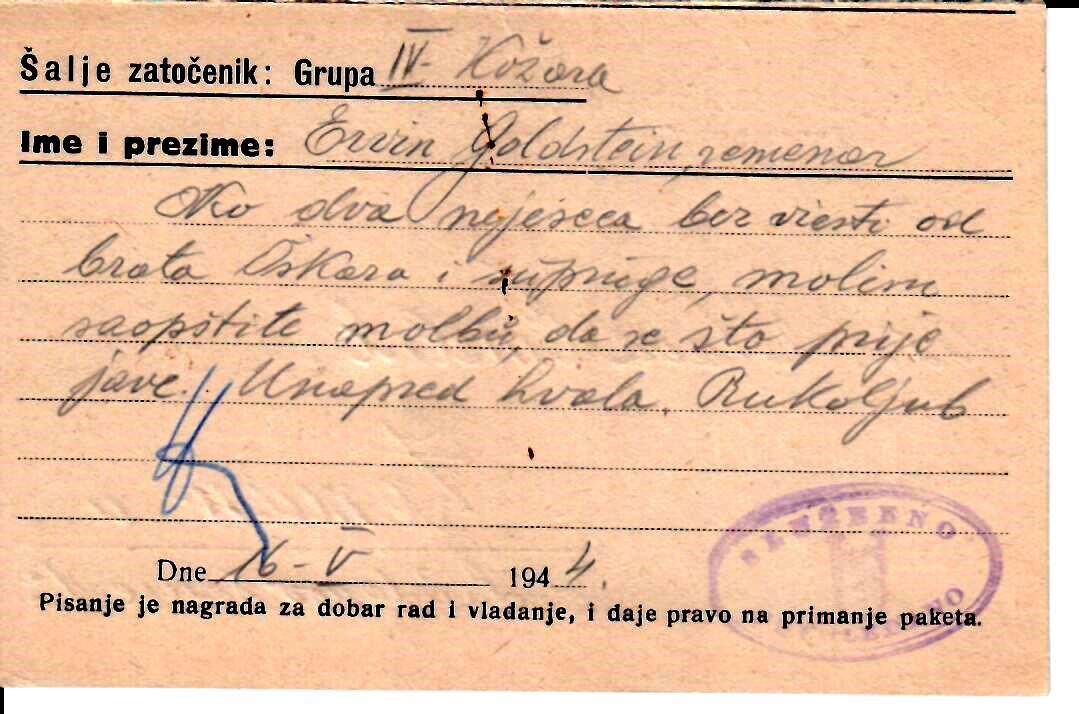 Šalje zatočenik: Grupa IV- Kožara
Ime i prezime: Ervin Goldstein, remenar
Oko dva mjeseca bez viesti od
brata Oskara i supruge, molim
saopštite molbu, da se što prije
jave. Unapred hvala. Rukoljub
Dne 16-V 1944.
Pisanje je nagrada za dobar rad i vladanje, i daje pravo na primanje paketa.
SLUŽBENO